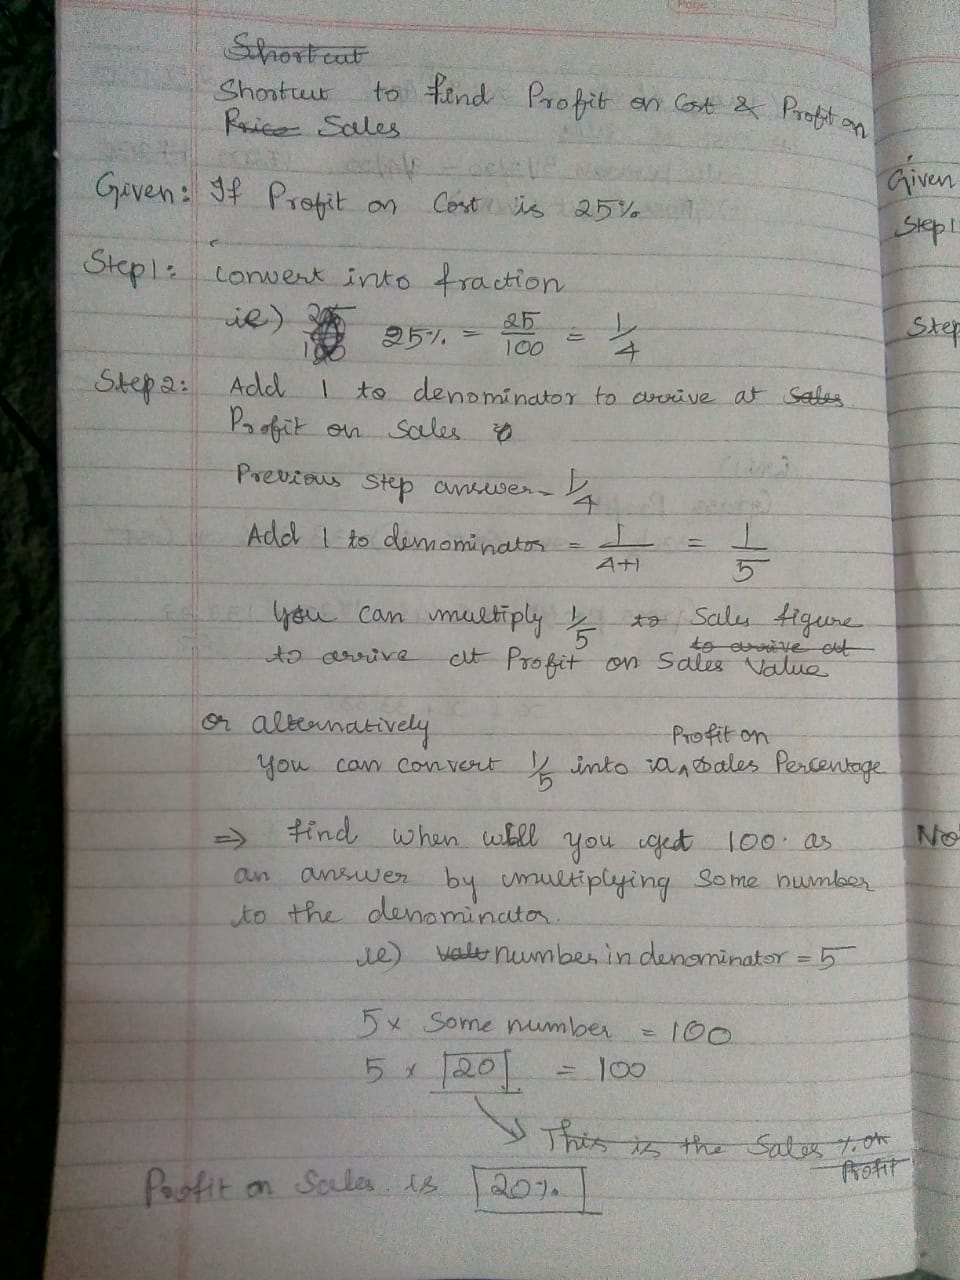 Shortcut
Shortcut to find Profit on Cost & Profit on
Price Sales
Given: If Profit on Cost is 25%
Step1: convert into fraction
ie) 25/100 25% = 25/100 = 1/4
Step 2: Add 1 to denominator to arrive at Sales
Profit on Sales
Previous Step answer - 1/4
Add 1 to dimominator = 1/4+1 = 1/5
You can multiply 1/5 to Sales figure
to arrive at
to arrive at Profit on Sales Value
or alternatively
Profit on
You can convert 1/5 into Sales Percentage
⇒ find when will you get 100. as
an answer by multiplying Some number
to the denominator.
ie) number in denominator = 5
5 x Some number = 100
5 x 20 = 100
This is the Sales % on
Profit
Profit on Sales is 20%
Given
Step 1
Step
No